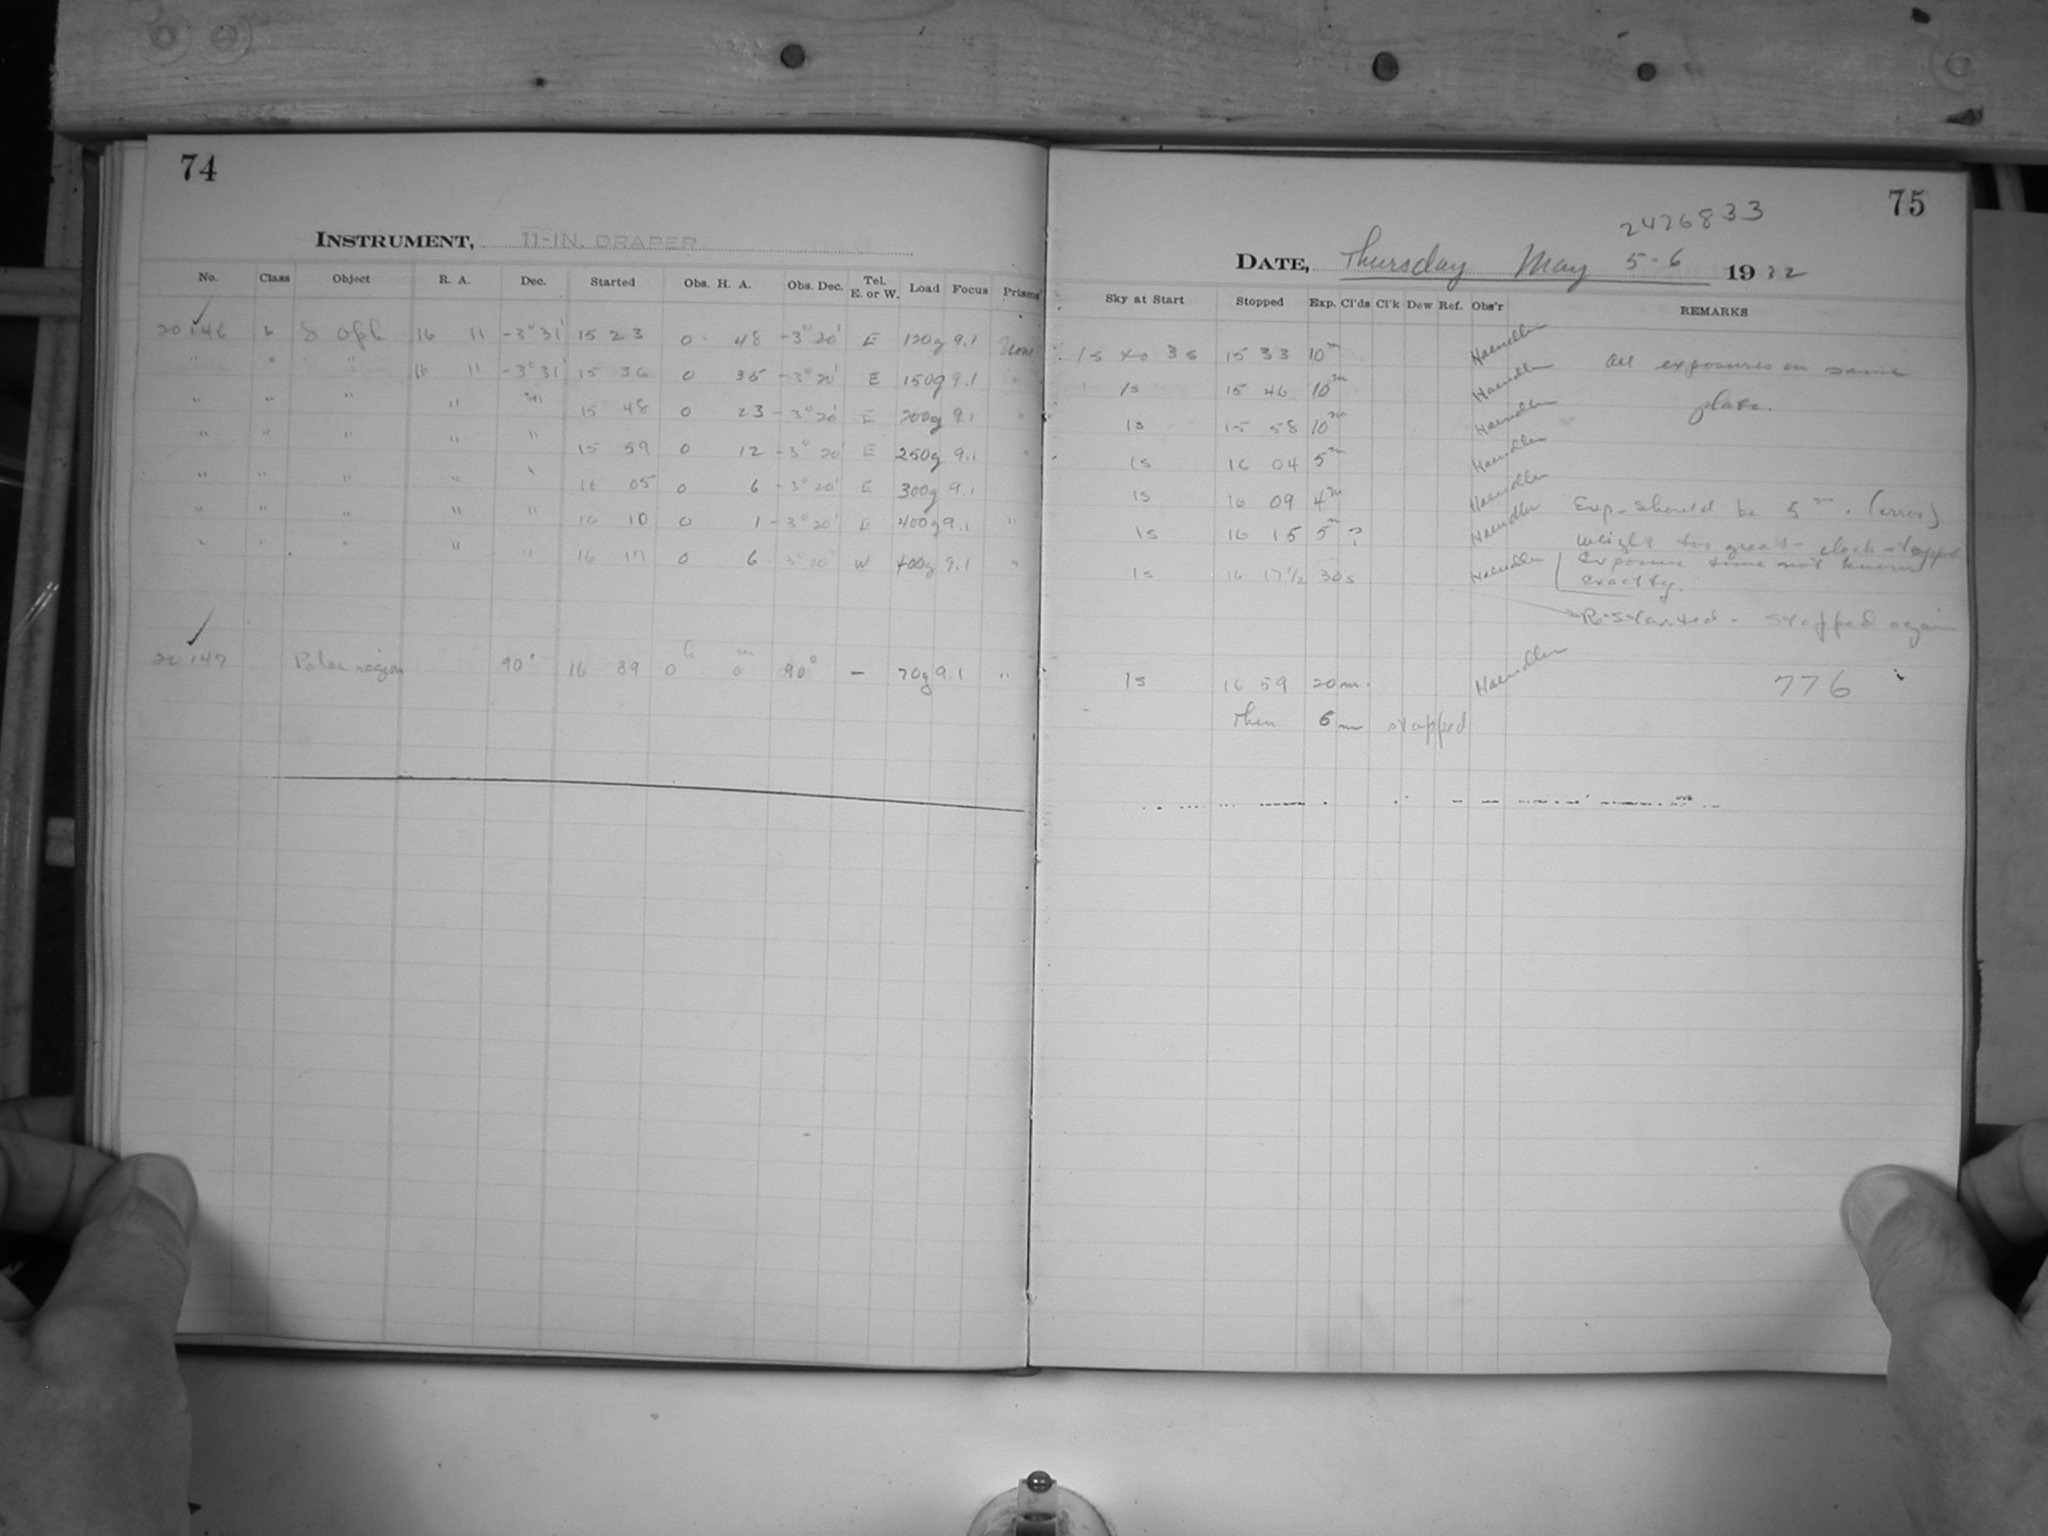 74
INSTRUMENT, 11-IN. DRAPER
No. Class Object R. A. Dec. Started Obs. H. A. Obs. Dec. Tel. E. or W. Load Focus Prisms
20146 b δ Oph 16 11 -3°31' 15 23 0 48 -3°20' E 120g 9.1 None
" " " 11 11 -3°31' 15 36 0 35 -3°20' E 150g 9.1 "
" " " " "" 15 48 0 23 -3°20' E 200g 9.1 "
" " " " " 15 59 0 12 -3°20' E 250g 9.1 "
" " " " " 16 05 0 6 -3°20' E 300g 9.1
" " " " " 16 10 0 1 -3°20' E 400g 9.1 "
" " " " " 16 17 0 6 -3°20' W 400g 9.1 "
20147 Polar region 90° 16 39 0h 0m 90° - 70g 9.1 "
75
2426833
DATE, Thursday May 5-6 1932
Sky at Start Stopped Exp. Cl'ds Cl'k Dew Ref. Obs'r REMARKS
1s to 3s 15 33 10m Haendler All exposures on same
1s 15 46 10m Haendler plate.
1s 15 58 10m Haendler
1s 16 04 5m Haendler
1s 16 09 4m Haendler Exp. should be 5m. (error)
1s 16 15 5m ? Haendler Weight too great - clock stopped
1s 16 17½ 30s Haendler Exposure time not known
exactly.
Re-started - stopped again
1s 16 59 20m. Haendler 776
then 6m stopped